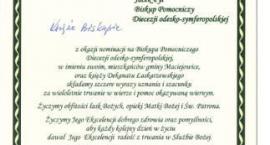 Biskup Pomocniczy
Diecezji odesko-symferopolskiej
Księże Biskupie
z okazji nominacji na Biskupa Pomocniczego
Diecezji odesko-symferopolskiej,
w imieniu swoim, mieszkańców gminy Maciejowice,
oraz księży Dekanatu Łaskarzewskiego
składamy szczere wyrazy uznania i szacunku
za wieloletnie trwanie w wierze i pomoc okazywaną wiernym.
Życzymy obfitości łask Bożych, opieki Matki Bożej i Św. Patrona.
Życzymy Jego Ekscelencji dobrego zdrowia oraz pomyślności,
aby każdy kolejny dzień w życiu
dawał Jego Ekscelencji radość z trwania w Służbie Bożej.